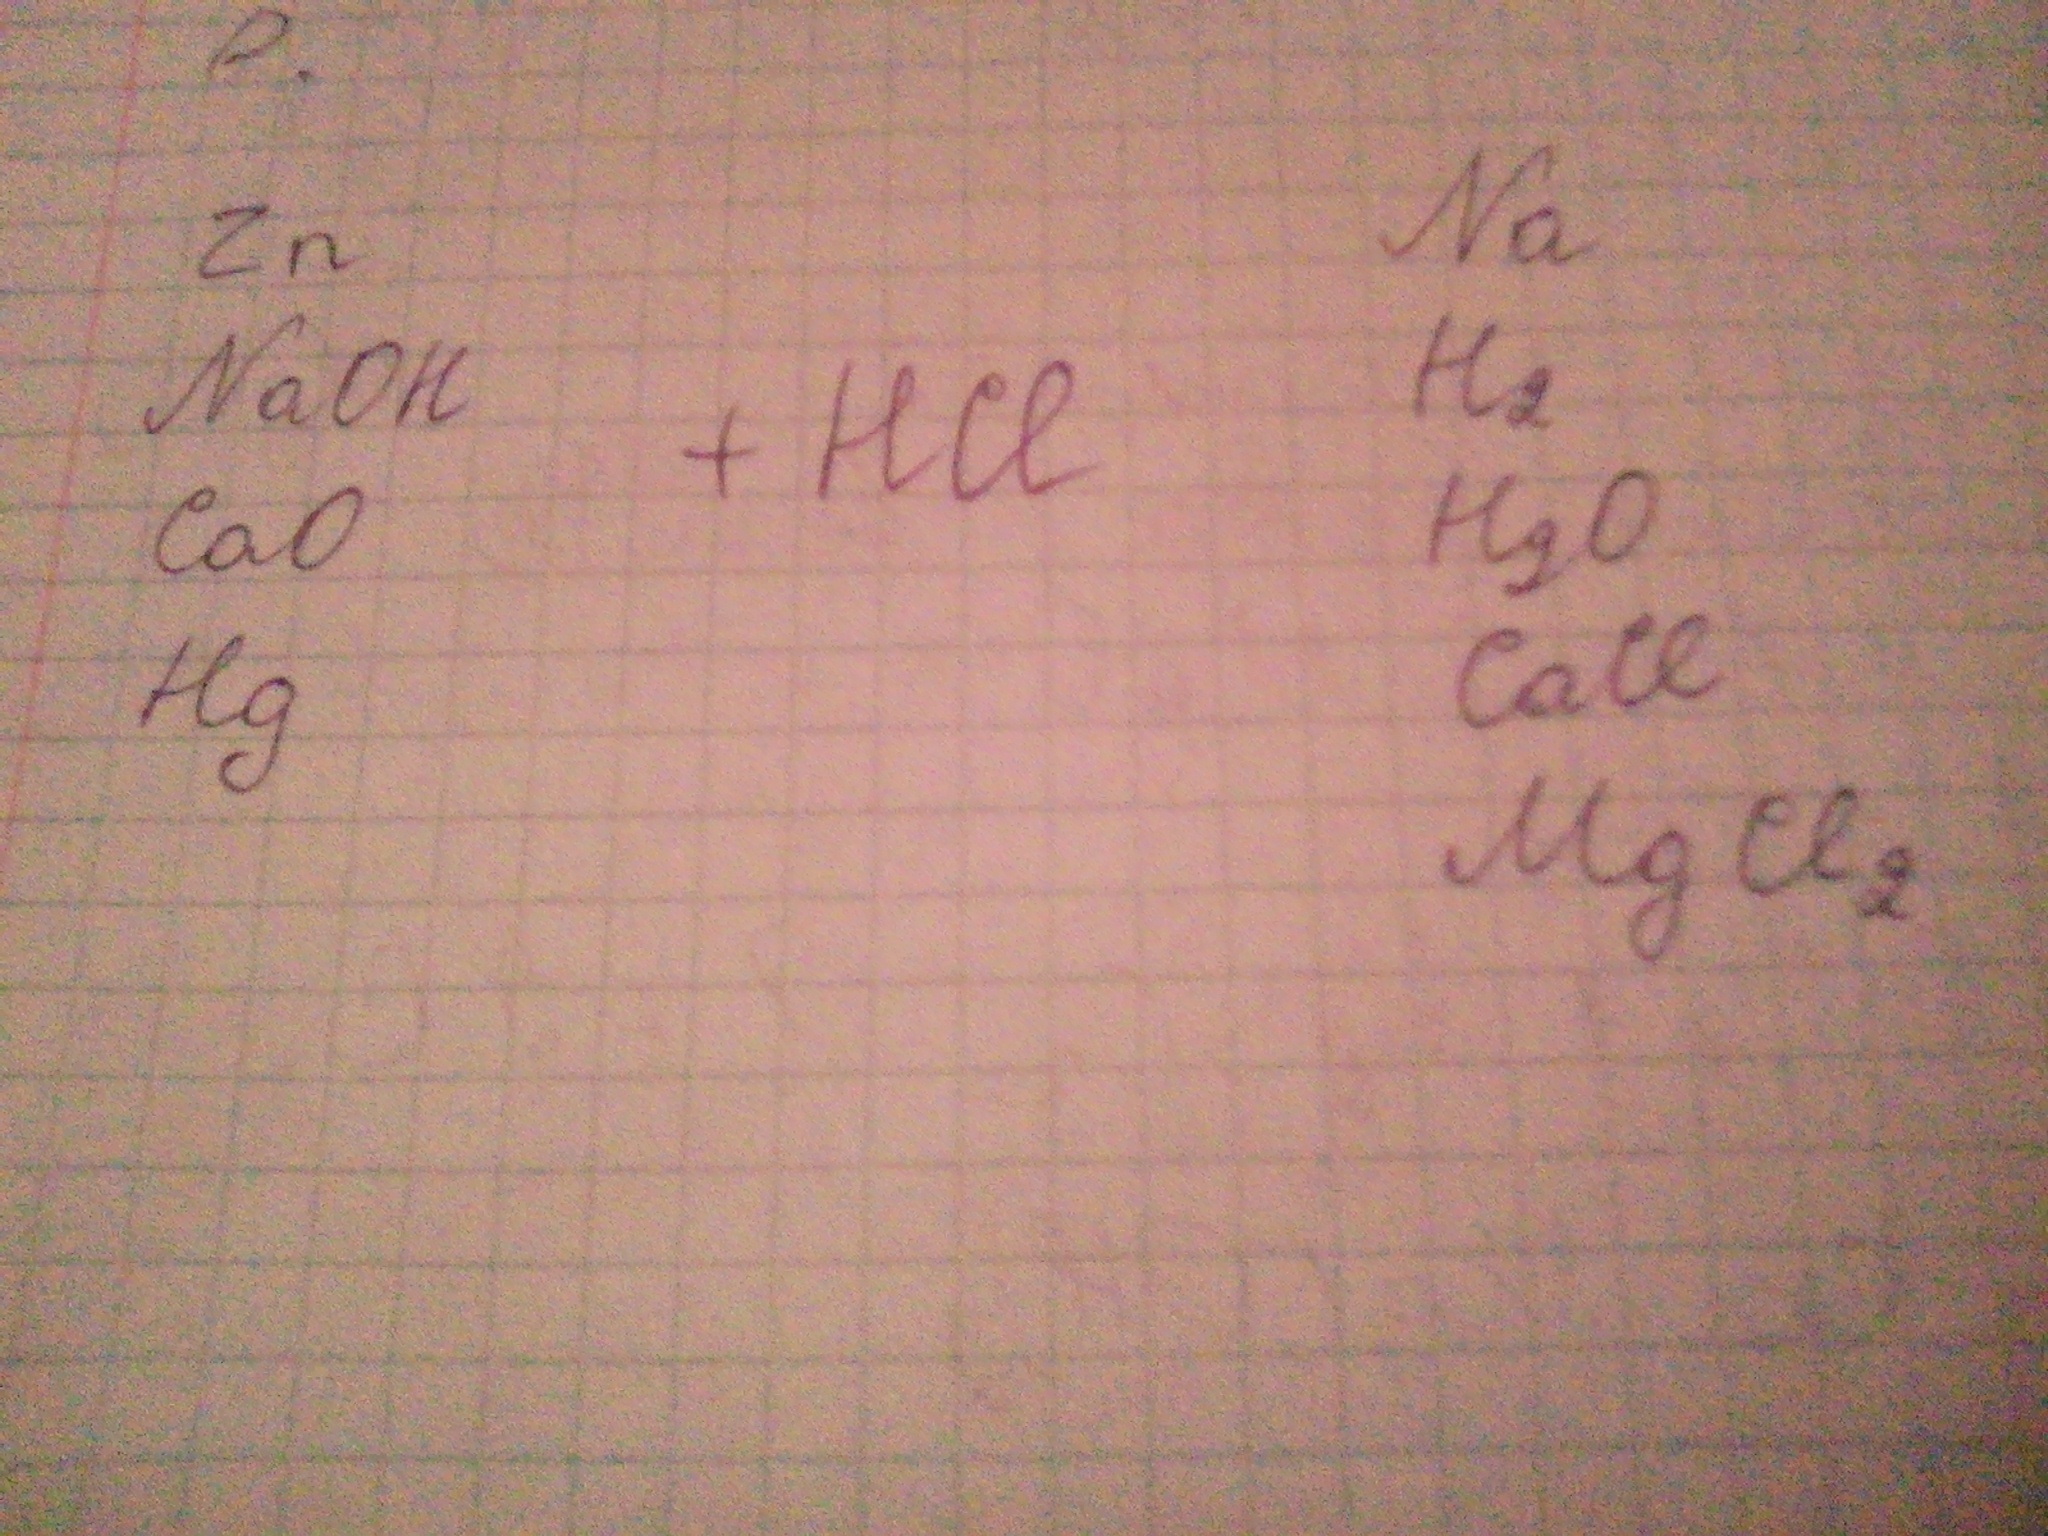 P.
Zn
NaOH
CaO
Hg
+ HCl
Na
H₂
H₂O
CaCl
MgCl₂